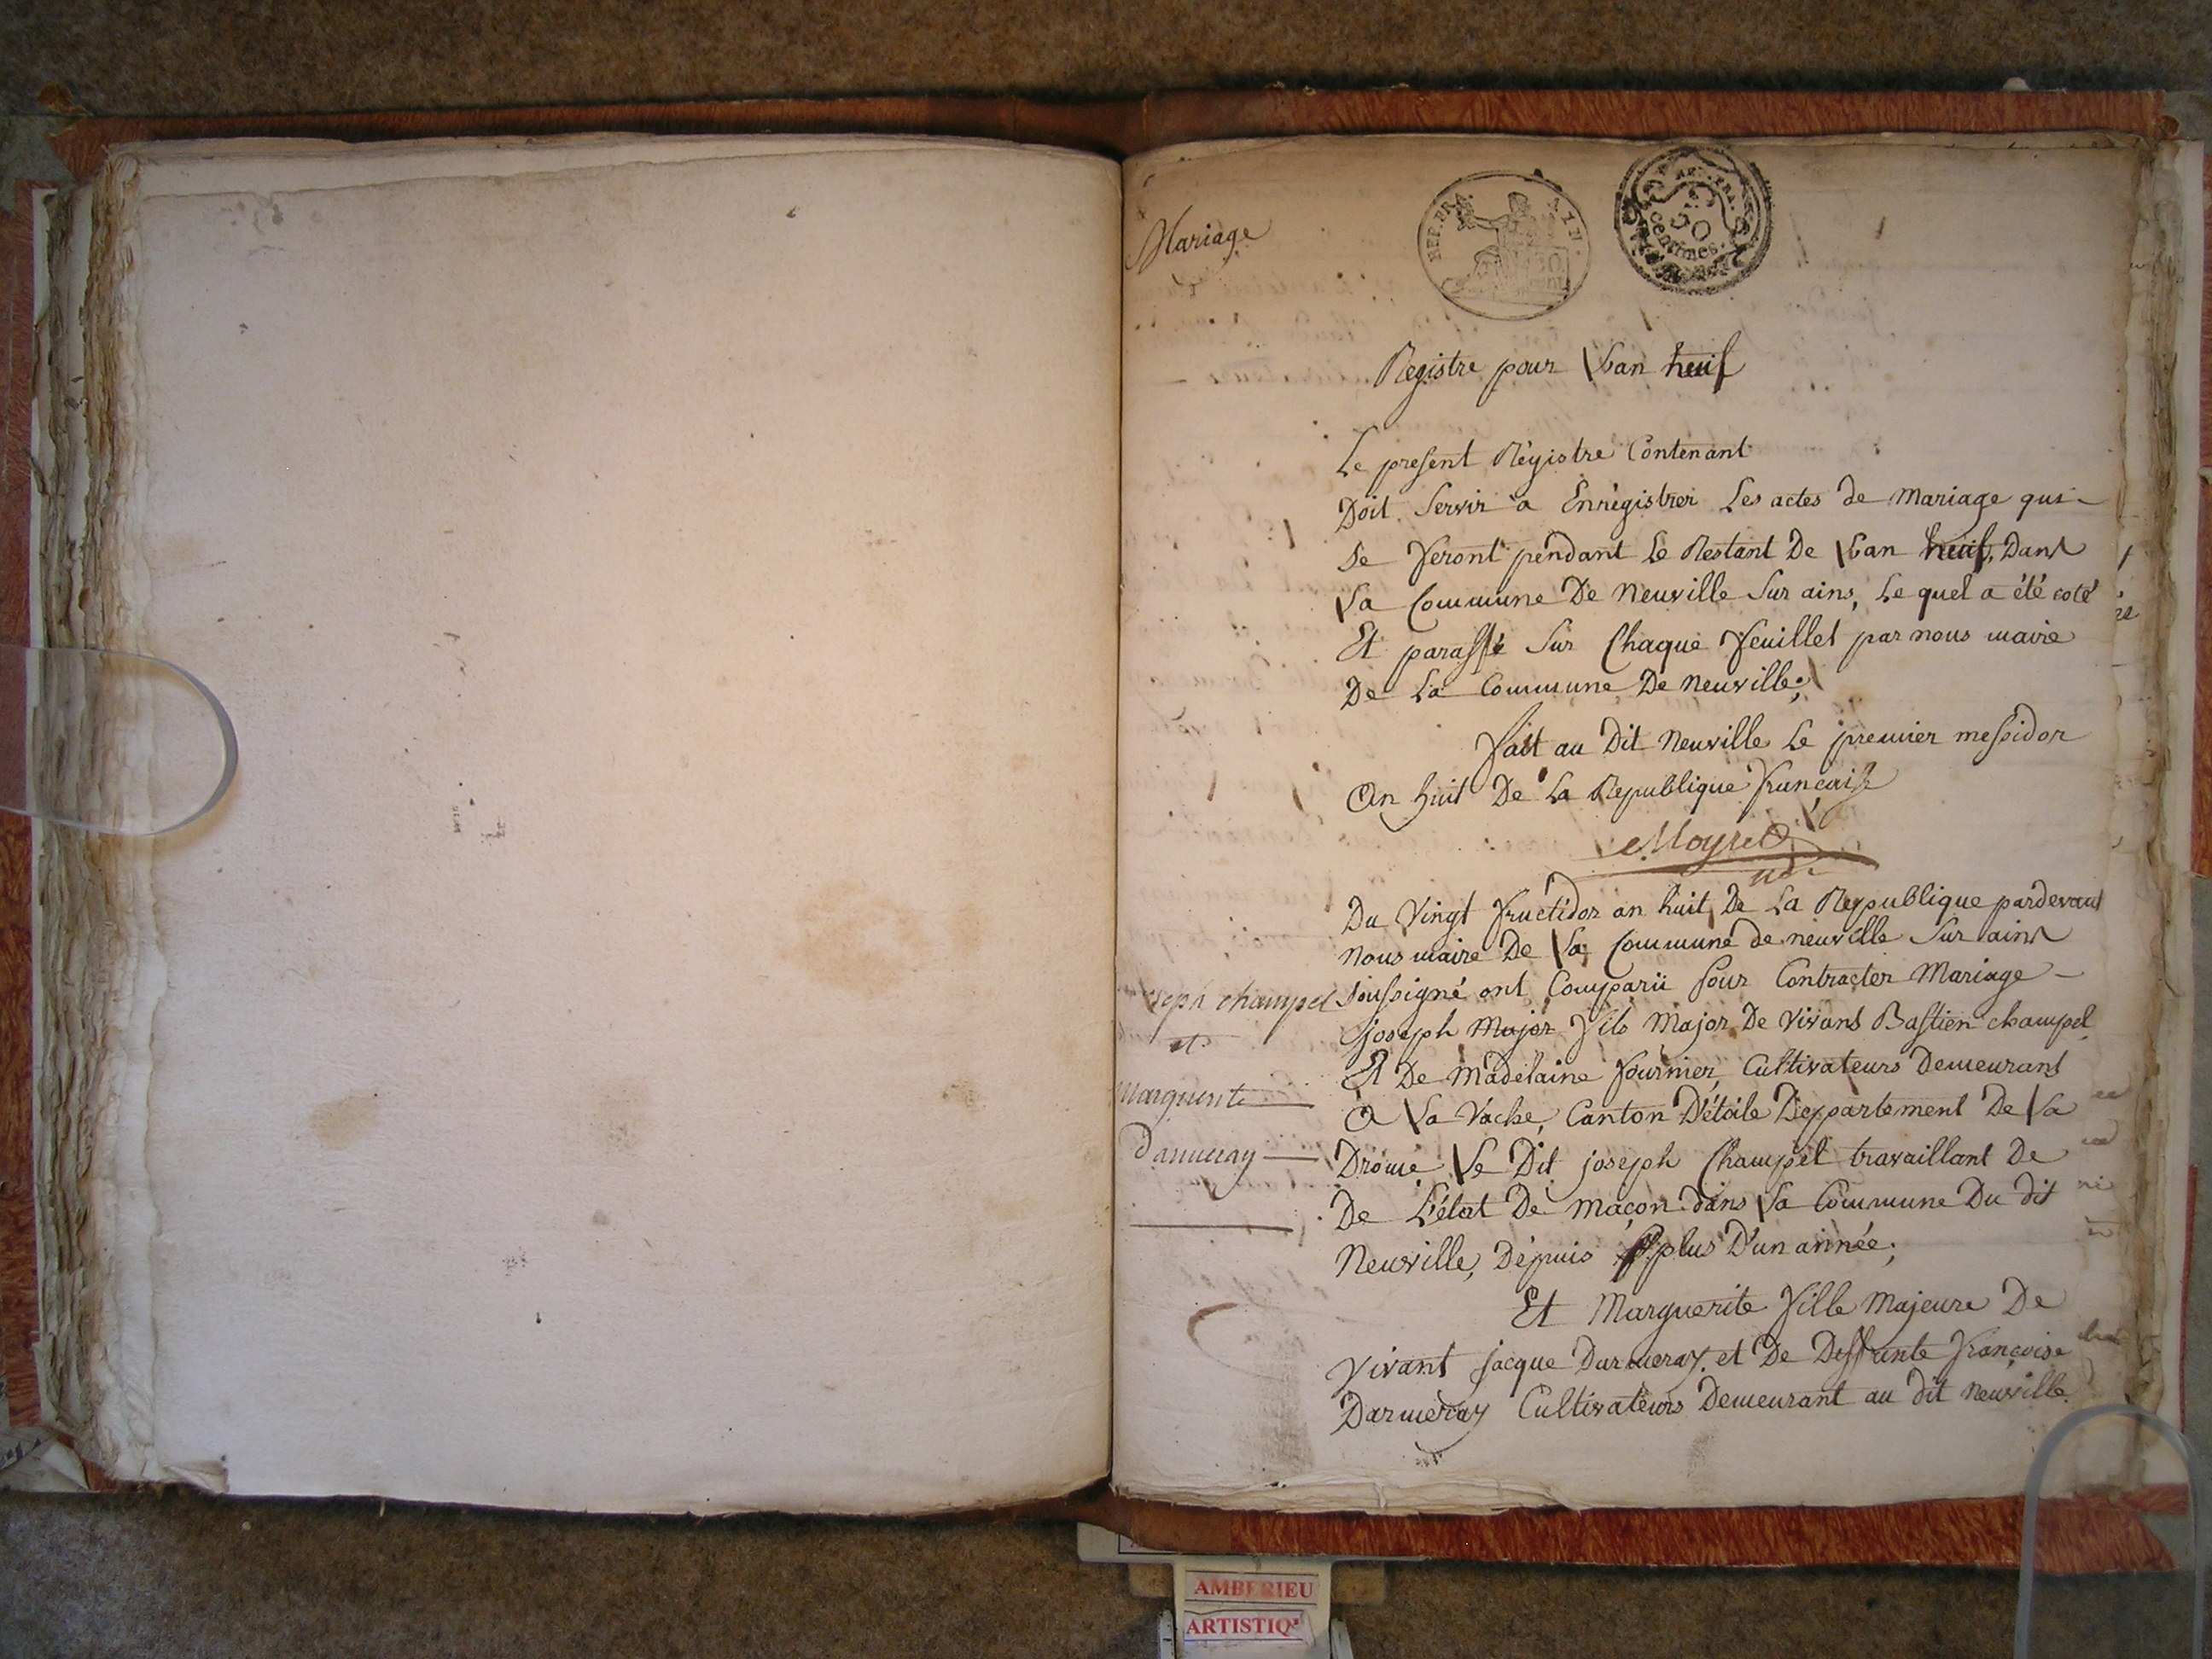 Mariage
REP. FRA.
50
centimes
Registre pour Lan neuf
Le present Régistre Contenant
Doit Servir a Enrégistrer Les actes de mariage qui
Se feront pendant Le Restant De Lan neuf, Dans
La Commune De Neuville Sur ains, Le quel a été coté
Et paraffé Sur Chaque feuillet par nous maire
De La Commune De neuville;
fait au Dit Neuville Le premier messidor
An huit De La Republique francaise
Moyret
Du Vingt fructidor an huit De La Republique pardevant
nous maire De La Commune de neuville Sur ains
Soussigné ont Comparü pour Contracter Mariage
joseph Major fils Major De vivans Bastien champel
Et De Madelaine fournier, Cultivateurs Demeurant
A La Vache, Canton D'étoile Departement De La
Drome Le Dit joseph Champel travaillant De
De L'état De maçon dans La Commune Du dit
Neuville, Dépuis plus D'un année;
Et Marguerite fille Majeure De
vivant jacque Darmeray et De Deffunte françoise
Darmeray Cultivateurs Demeurant au dit neuville.
seph champel
et
Marguerite
Darmeray
AMBERIEU
ARTISTIQ